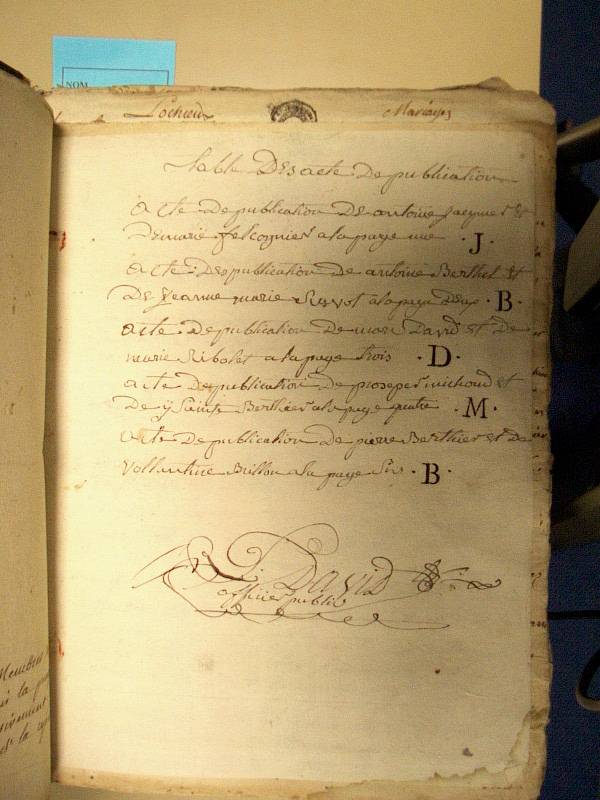 NOM
Lochieu Mariages
table Des acte De publication
acte De publication De antoine jacquier et
De marie felconnier a la page une . J .
acte Des publication De antoine Berthet et
De jeanne marie a la page Deux . B .
acte De publication De marc David et De
marie Ribolet a la page trois . D .
acte De publication De prosper michoud et
De Berthier a la page quatre . M .
acte De publication De pierre Berthier et De
vallantine Billon a la page . B .
David
officier public
Membre
la